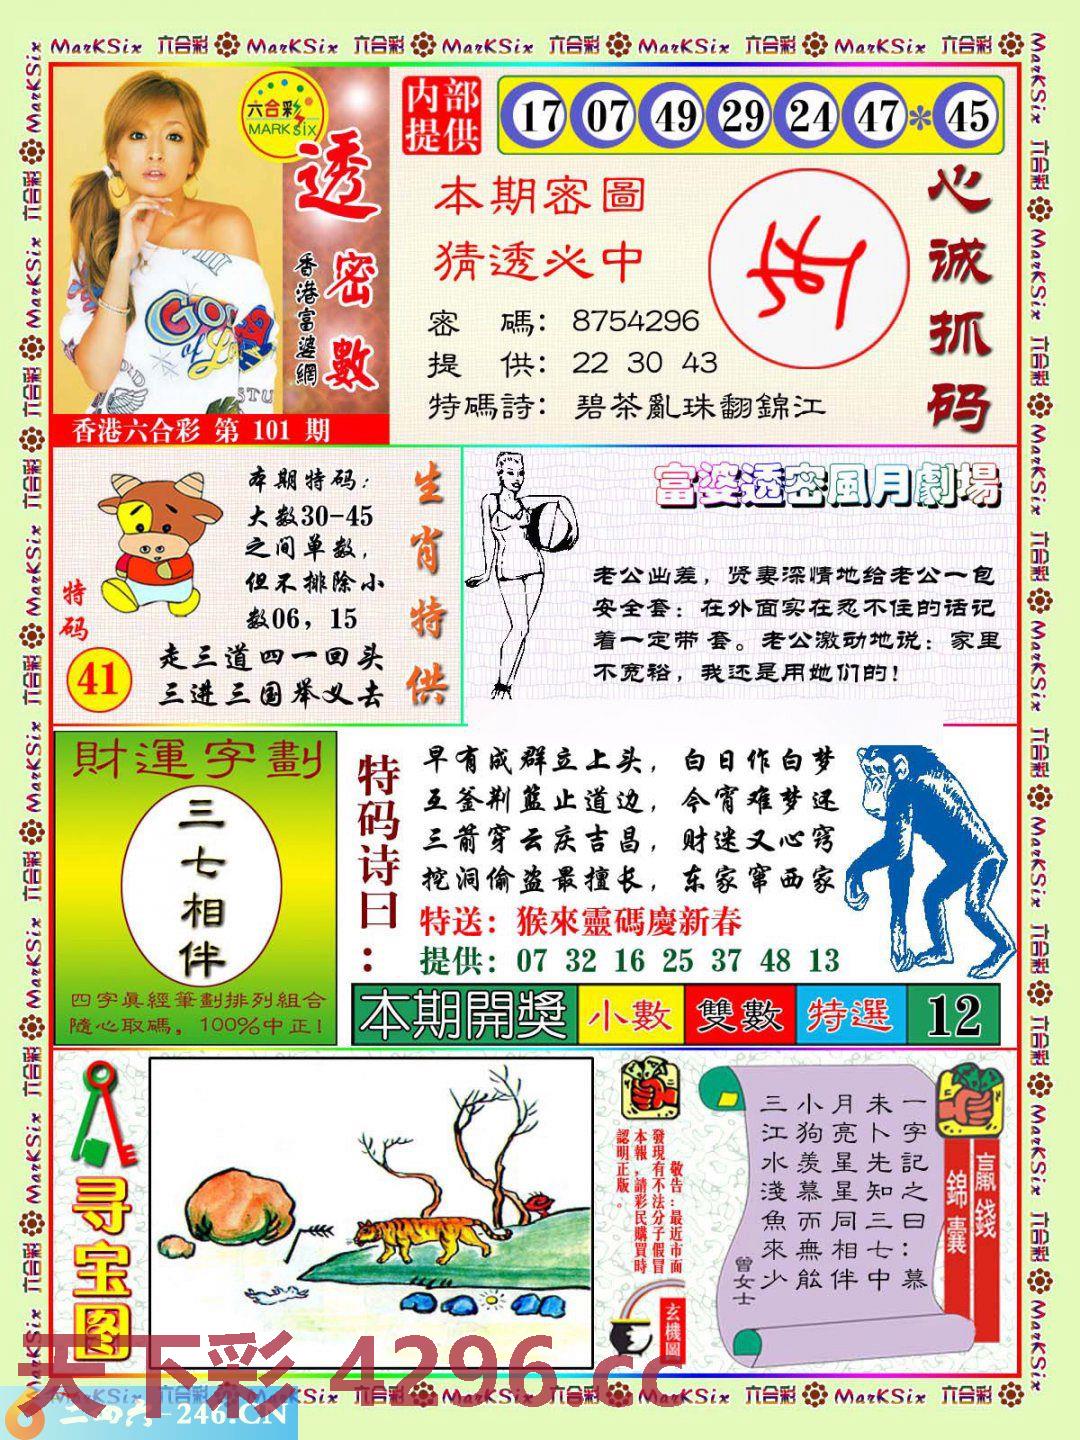 MarKSix 六合彩 MarKSix 六合彩 MarKSix 六合彩 MarKSix 六合彩 MarKSix 六合彩
六合彩
MARK SIX
透密數
香港富婆網
香港六合彩 第 101 期
内部
提供
17 07 49 29 24 47 * 45
本期密圖
猜透必中
密 碼: 8754296
提 供: 22 30 43
特碼詩: 碧茶亂珠翻錦江
心诚抓码
特码
41
本期特码:
大数30-45
之间单数,
但不排除小
数06, 15
走三道四一回头
三进三国举义去
生肖特供
富婆透密風月劇場
老公出差, 贤妻深情地给老公一包
安全套: 在外面实在忍不住的话记
着一定带 套。老公激动地说: 家里
不宽裕, 我还是用她们的!
財運字劃
三七相伴
四字真經筆劃排列組合
隨心取碼, 100%中正!
特码诗曰:
早有成群立上头, 白日作白梦
互釜荆篮止道边, 今宵难梦还
三箭穿云庆吉昌, 财迷又心窍
挖洞偷盗最擅长, 东家窜西家
特送: 猴來靈碼慶新春
提供: 07 32 16 25 37 48 13
本期開獎 小數 雙數 特選 12
寻宝图
敬告:最近市面
發現有不法分子假冒
本報,請彩民購買時
認明正版。
玄機圖
一字記之曰:慕
未卜先知三七中
月亮星星同相伴
小狗羡慕而無能
三江水淺魚來少
曾女士
贏錢
錦囊
天下彩 4296.cc
-246.CN
MarKSix 六合彩 MarKSix 六合彩 MarKSix 六合彩 MarKSix 六合彩 MarKSix 六合彩